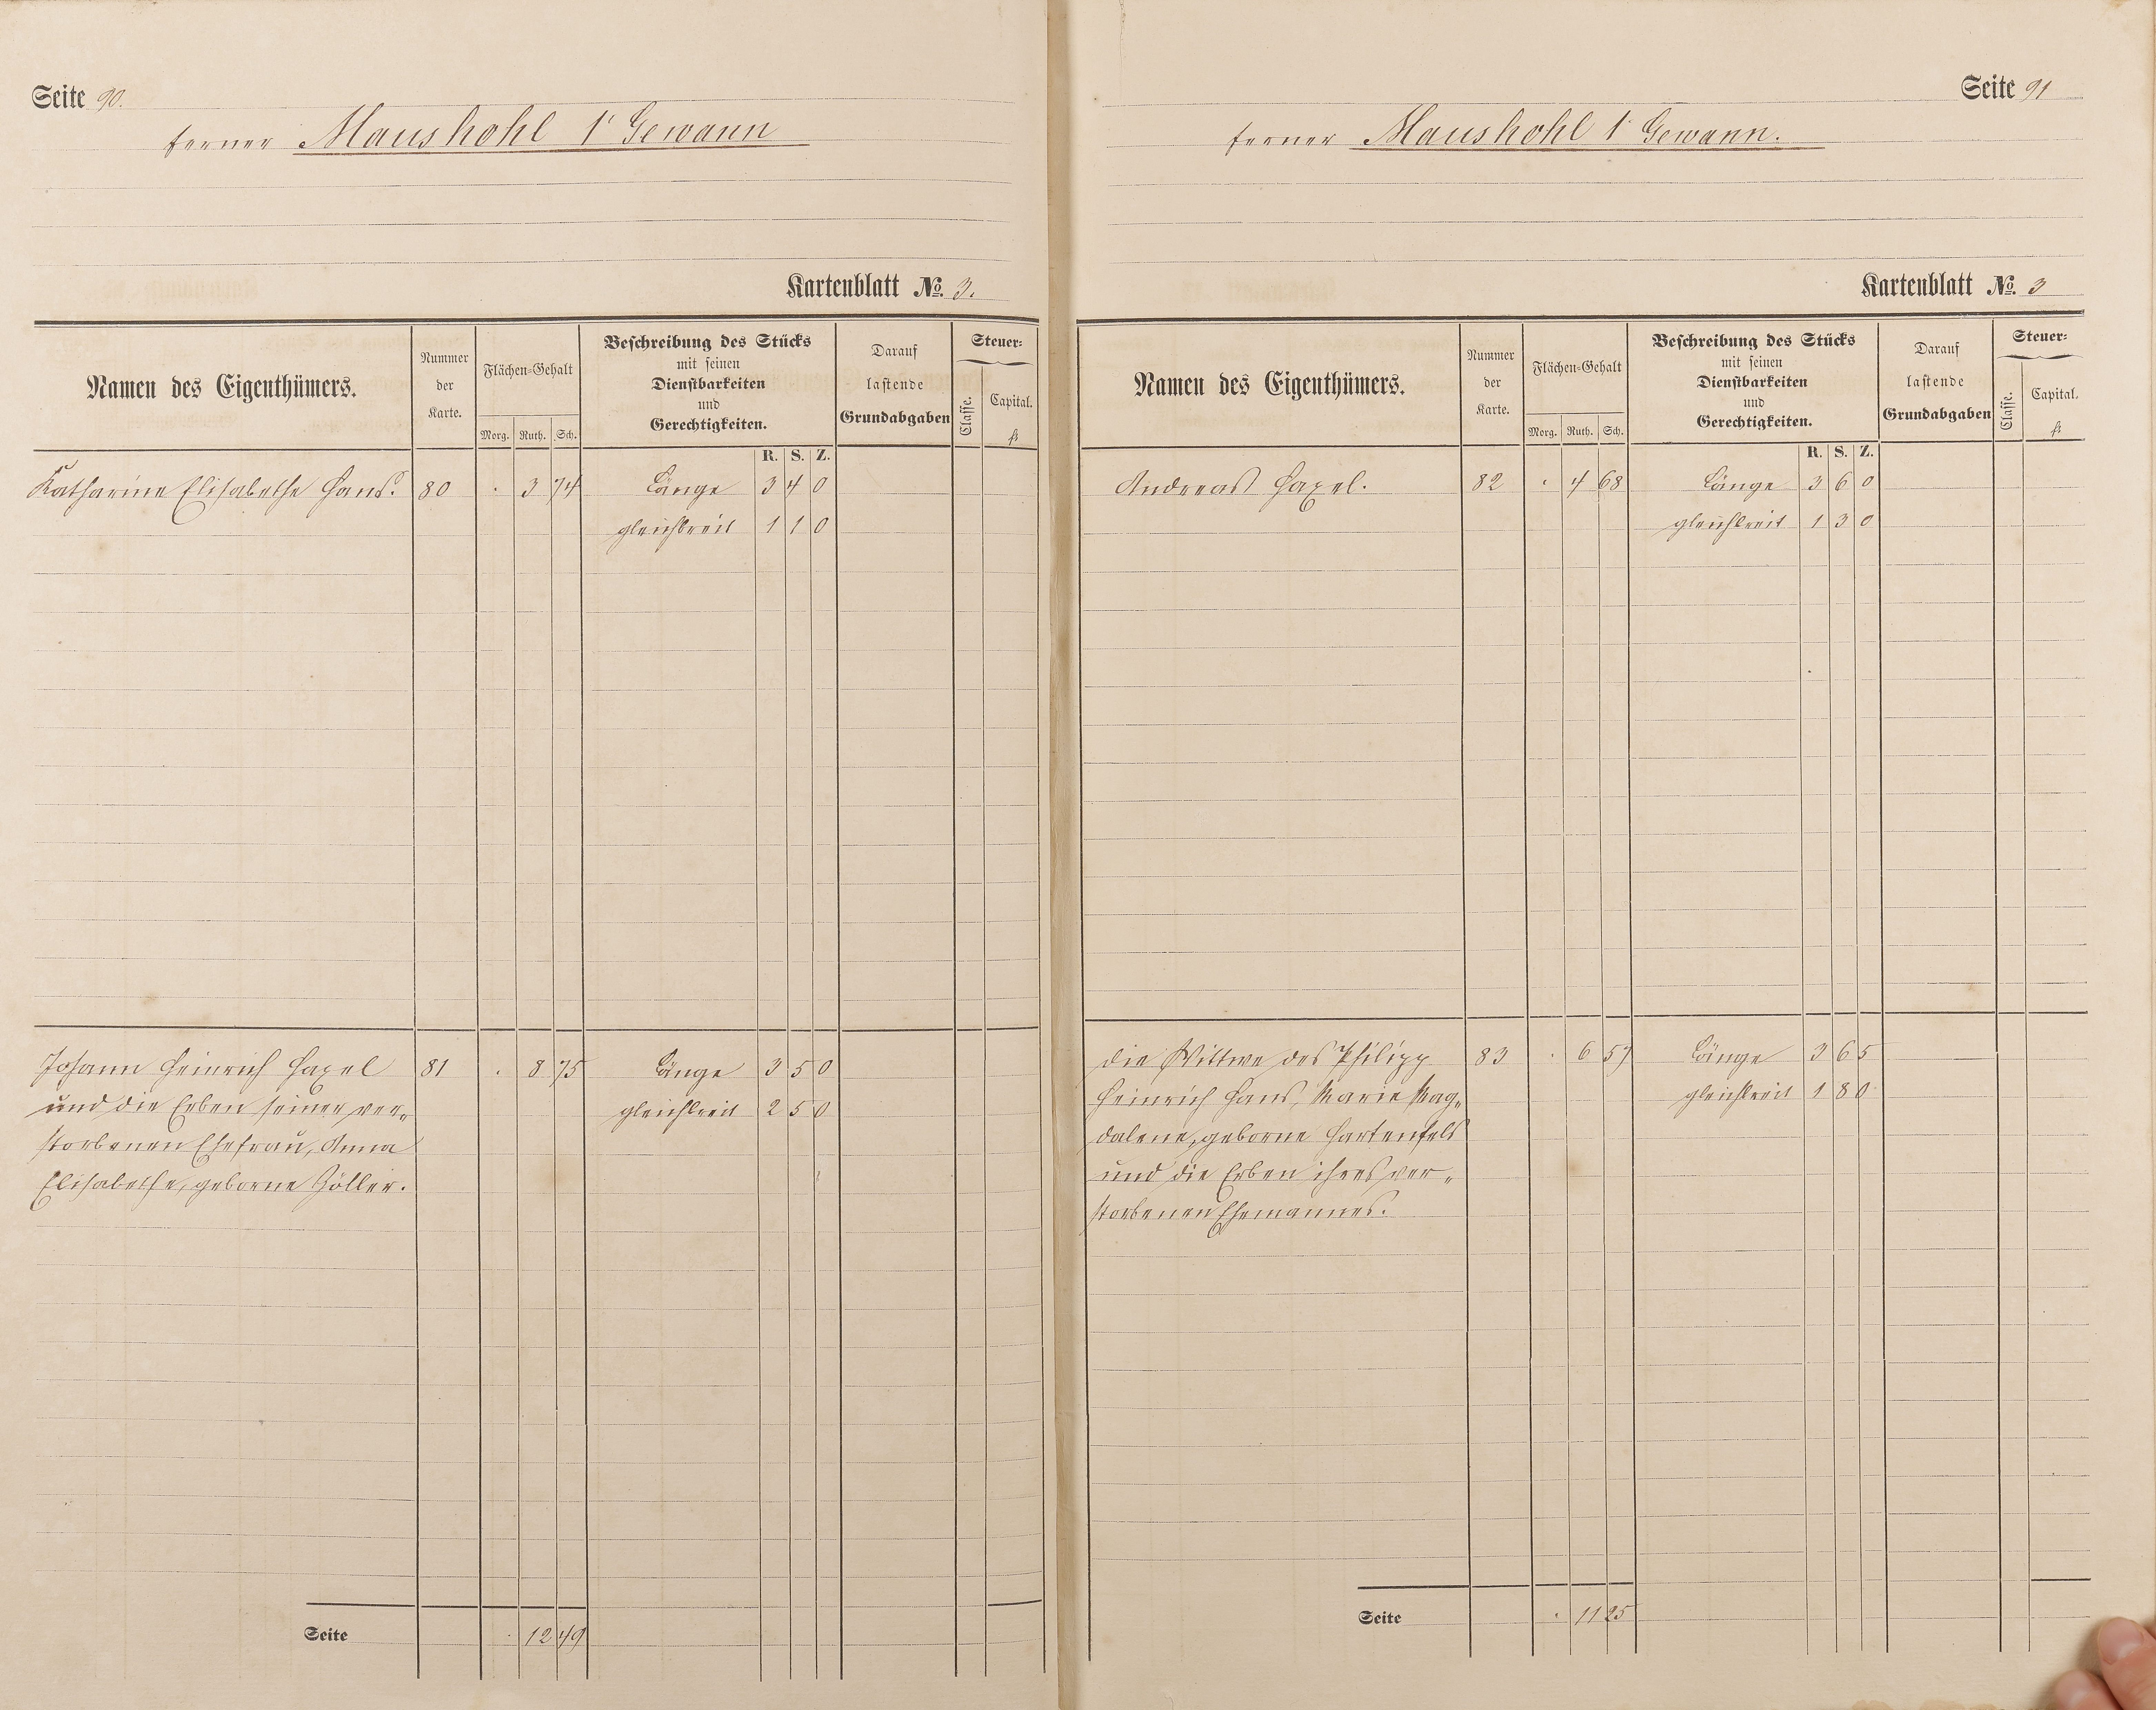 Seite 90.
ferner Maushohl 1r Gewann
Kartenblatt No. 3.
Namen des Eigenthümers.
Nummer der Karte.
Flächen-Gehalt
Morg. Ruth. Sch.
Beschreibung des Stücks
mit seinen
Dienstbarkeiten
und
Gerechtigkeiten.
Darauf
lastende
Grundabgaben
Steuer-
Classe.
Capital.
fl
R. S. Z.
Katharine Elisabethe Hans. 80 . 3 74 Länge 3 4 0
gleichbreit 1 1 0
Johann Heinrich Haxel 81 . 8 75 Länge 3 5 0
und die Erben seiner ver- gleichbreit 2 5 0
storbenen Ehefrau, Anna
Elisabethe, geborne Zöller.
Seite . 12 49
Seite 91
ferner Maushohl 1r Gewann.
Kartenblatt No. 3
Namen des Eigenthümers.
Nummer der Karte.
Flächen-Gehalt
Morg. Ruth. Sch.
Beschreibung des Stücks
mit seinen
Dienstbarkeiten
und
Gerechtigkeiten.
Darauf
lastende
Grundabgaben
Steuer-
Classe.
Capital.
fl
R. S. Z.
Andreas Haxel. 82 . 4 68 Länge 3 6 0
gleichbreit 1 3 0
die Wittwe des Philipp 83 . 6 57 Länge 3 6 5
Heinrich Hans, Marie Mag- gleichbreit 1 8 0
dalene, geborne Hartenfels
und die Erben ihres ver-
storbenen Ehemannes.
Seite . 11 25